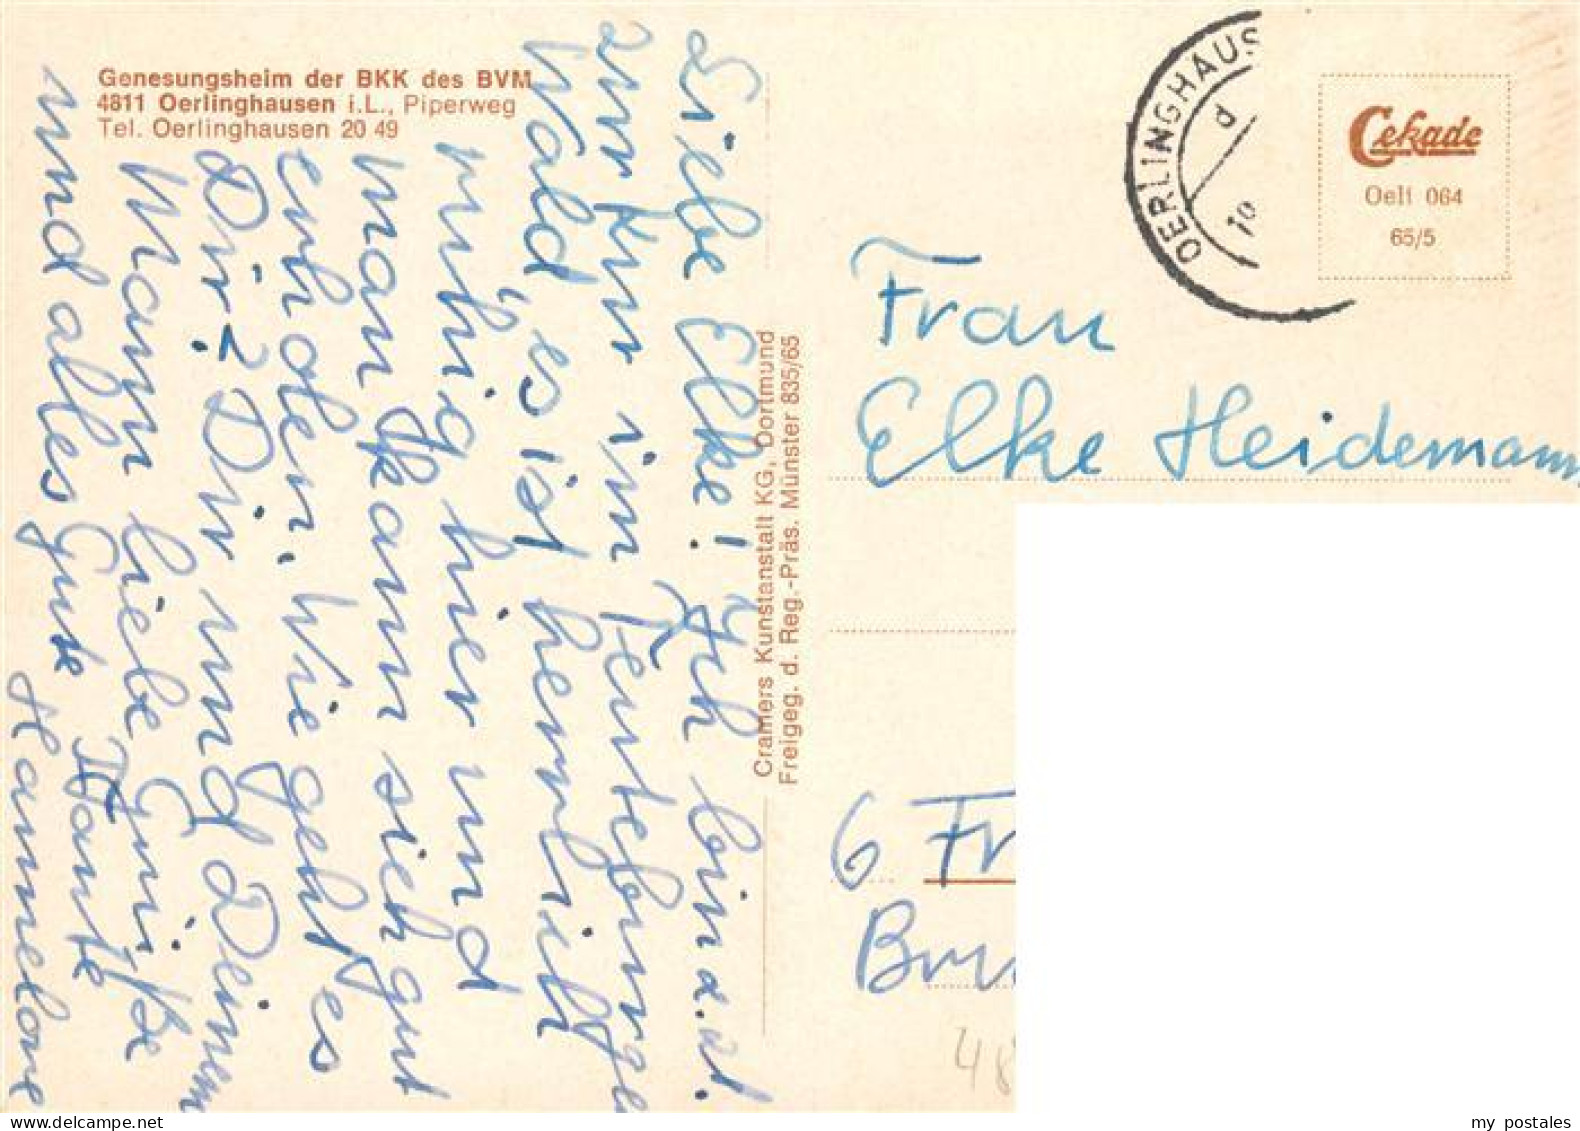 Genesungsheim der BKK des BVM
4811 Oerlinghausen i.L., Piperweg
Tel. Oerlinghausen 20 49
Liebe Elke! Ich bin z. Zt.
zur Kur im Teutoburger
Wald, es ist herrlich
ruhig hier und
man kann sich gut
erholen. Wie geht es
Dir? Dir und Deinem
Mann liebe Grüße
und alles Gute Tante
Hannelore
Cramers Kunstanstalt KG, Dortmund
Freigeg. d. Reg.-Präs. Münster 835/65
OERLINGHAUS
d
19
Cekade
Oeli 064
65/5
Frau
Elke Heidemann
6 Fr
Bru
48
my postales